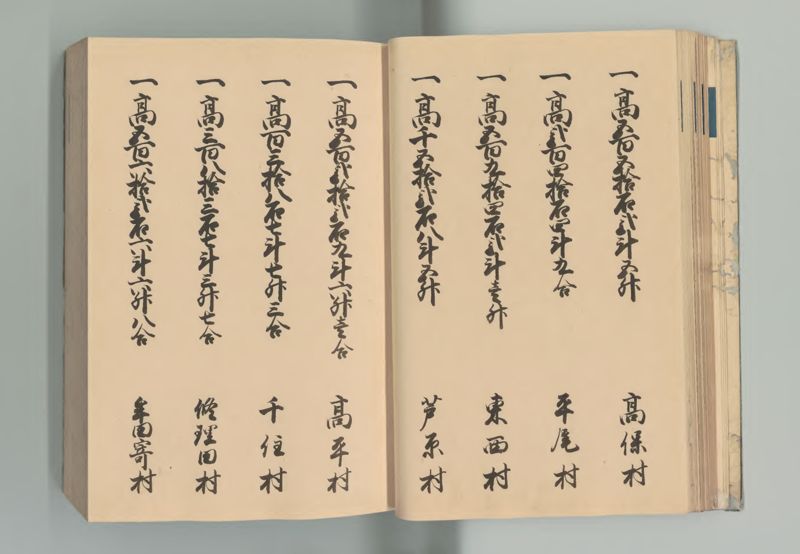 一高五百五拾石弐斗五升 高保村
一高弐百四拾石四斗九合 平尾村
一高五百九拾四石弐斗壱升 東西村
一高千五拾弐石八斗五升 芦原村
一高五百弐拾弐石九斗六升壱合 高平村
一高百三拾八石七斗七升三合 千住村
一高三百八拾三石七斗三升七合 修理田村
一高五百六拾弐石六斗六升八合 牟田寄村